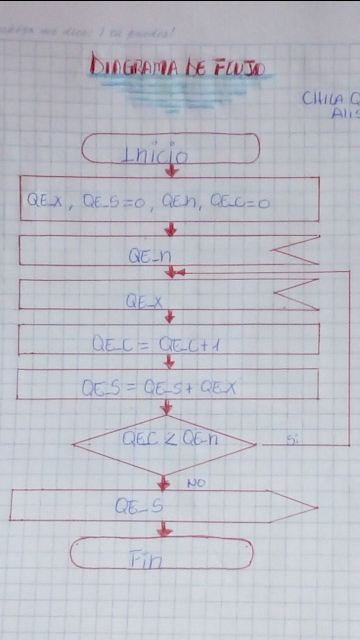 DIAGRAMA DE FLUJO
CHILA
Inicio
QE_X, QE_S=0, QE_n, QE_C=0
QE_n
QE_X
QE_C = QE_C+1
QE_S = QE_S + QE_X
QE_C < QE_n
Si
NO
QE_S
Fin